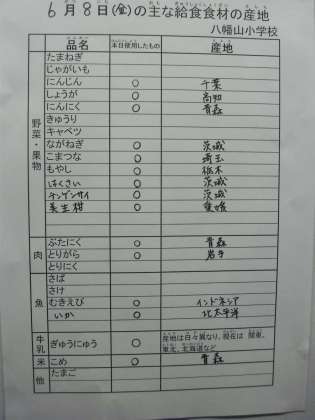 6月8日(金)の主な給食食材の産地
八幡山小学校
品名 本日使用したもの 産地
野菜・果物
たまねぎ
じゃがいも
にんじん ○ 千葉
しょうが ○ 高知
にんにく ○ 青森
きゅうり
キャベツ
ながねぎ ○ 茨城
こまつな ○ 埼玉
もやし ○ 栃木
はくさい ○ 茨城
チンゲンサイ ○ 茨城
美生柑 ○ 愛媛
肉
ぶたにく ○ 青森
とりがら ○ 岩手
とりにく
魚
さば
さけ
むきえび ○ インドネシア
いか ○ 北太平洋
牛乳 ぎゅうにゅう ○ 産地は日々異なり、現在は 関東、
東北、北海道など
米 こめ ○ 青森
他 たまご